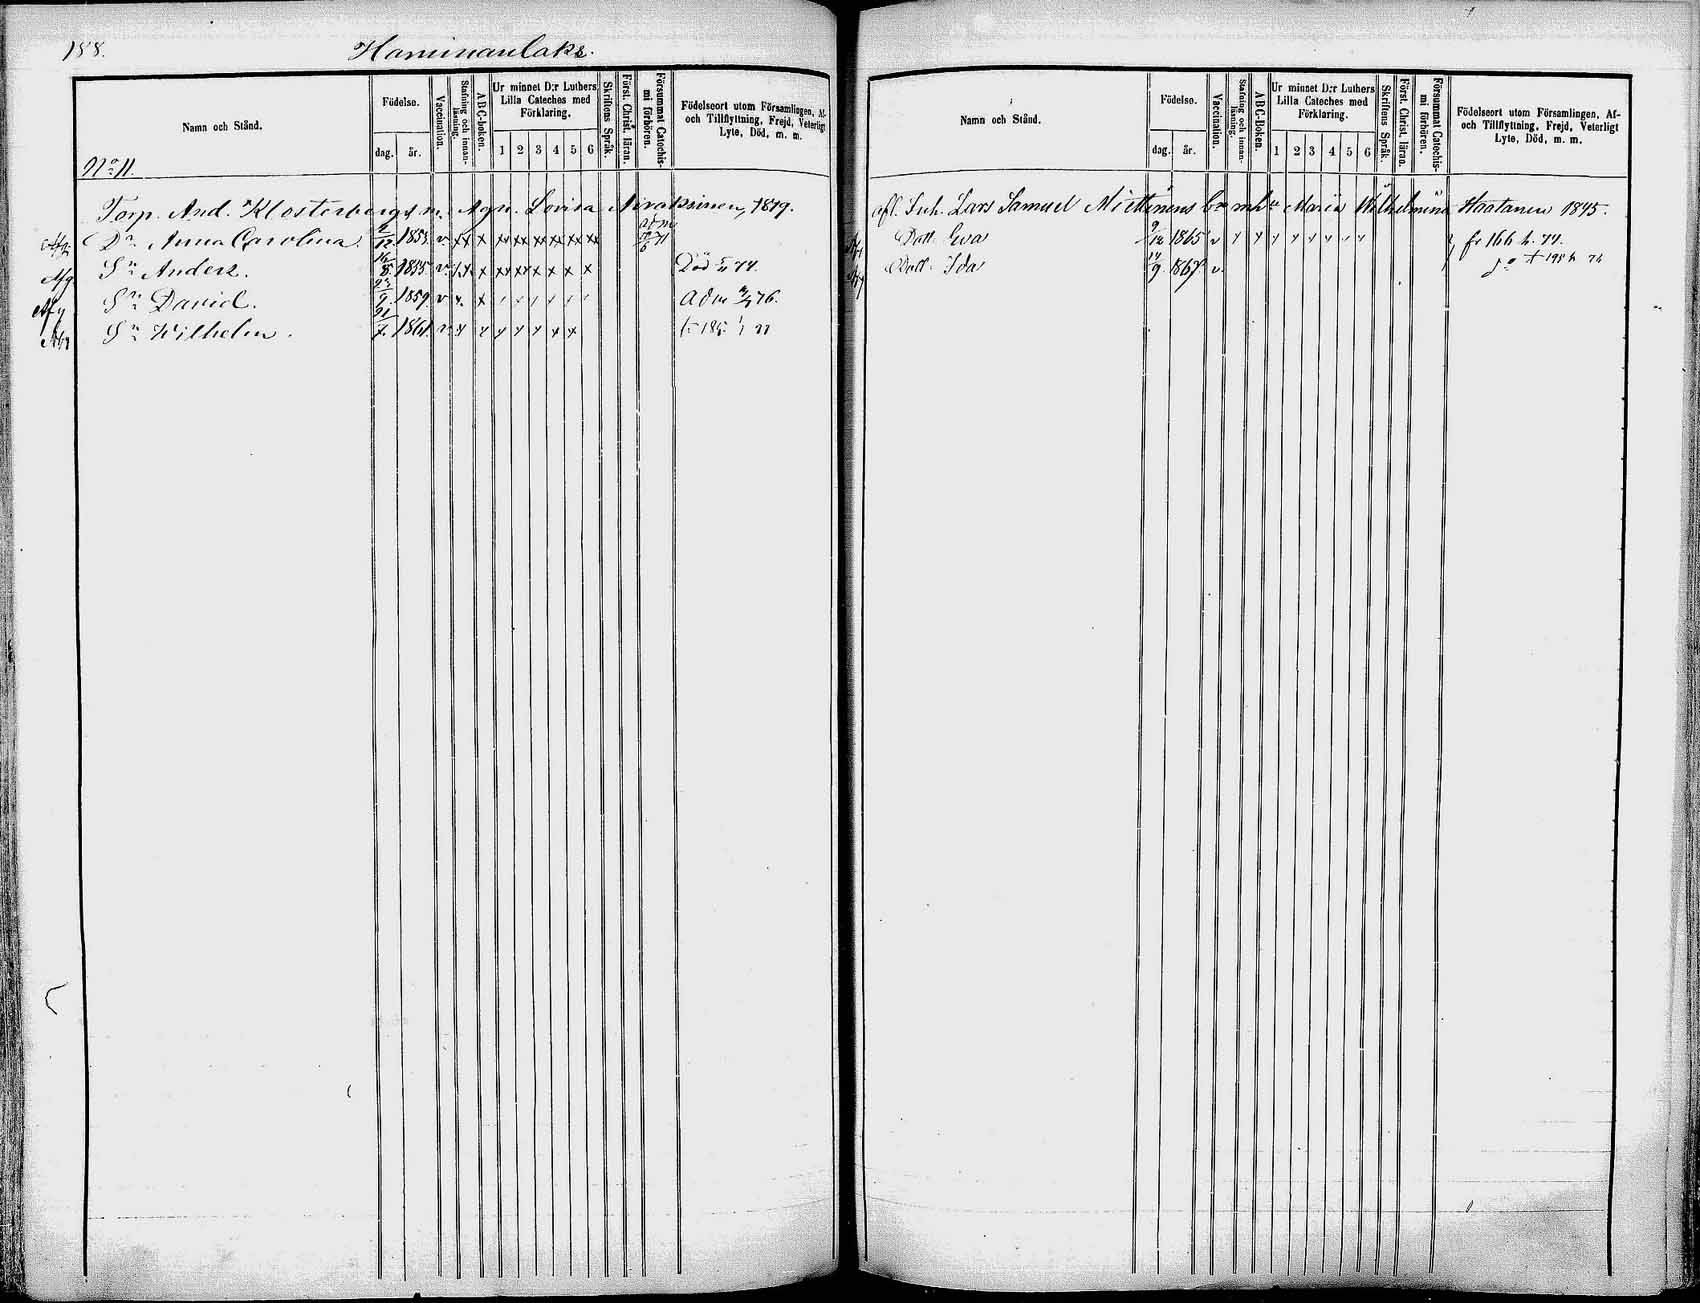 188.
Haminanlaks.
Namn och Stånd.
Födelse.
dag.
år.
Vaccination.
Stafning och innan-
läsning.
ABC-boken.
Ur minnet D:r Luthers
Lilla Cateches med
Förklaring.
1 2 3 4 5 6
Skriftens Språk.
Först. Christ. läran.
Försummat Catechis-
mi förhören.
Födelseort utom Församlingen, Af-
och Tillflyttning, Frejd, Veterligt
Lyte, Död, m. m.
No 11.
Torp. And. Klosterbergs m. Agn. Lovisa 1819.
Dr Anna Carolina 2/12 1853 v. xx x xx xx xx xx xx xx adm
Sn Anders. 16/8 1855 v. x x x xx xx x x x x Död 74.
Sn David. 23/9 1859 v x. x Adm 76.
Sn Wilhelm. 21/7 1861 v x x x x x x x
Namn och Stånd.
Födelse.
dag.
år.
Vaccination.
Stafning och innan-
läsning.
ABC-Boken.
Ur minnet D:r Luthers
Lilla Cateches med
Förklaring.
1 2 3 4 5 6
Skriftens Språk.
Först. Christ. läran.
Försummat Catechis-
mi förhören.
Födelseort utom Församlingen, Af-
och Tillflyttning, Frejd, Veterligt
Lyte, Död, m. m.
afl. Inh. Lars Samuel Miettinens Maria Wilhelmina Haatanen 1845.
Dott. Eva 9/12 1865 v fr 166 h. 74.
Dott. Ida 14/9 1867 v.